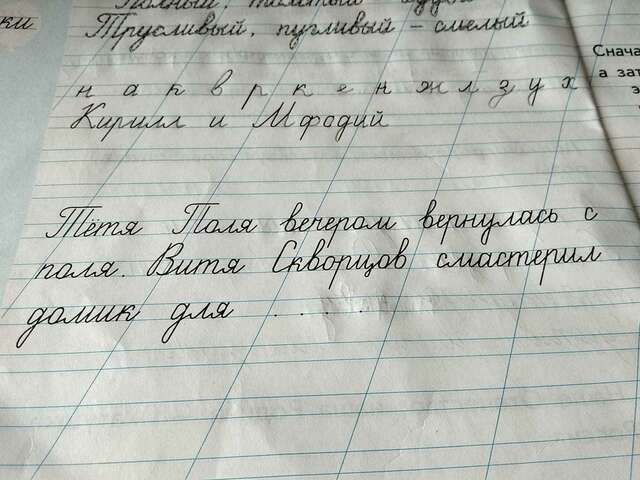 ки
Трусливый, пугливый – смелый
Снача
а зат
н а к в р к е н ж л з у х
Кирилл и Мфодий
Тётя Поля вечером вернулась с
поля. Витя Скворцов смастерил
домик для . . . . .